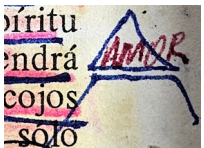 píritu
endrá
cojos
sólo
AMOR